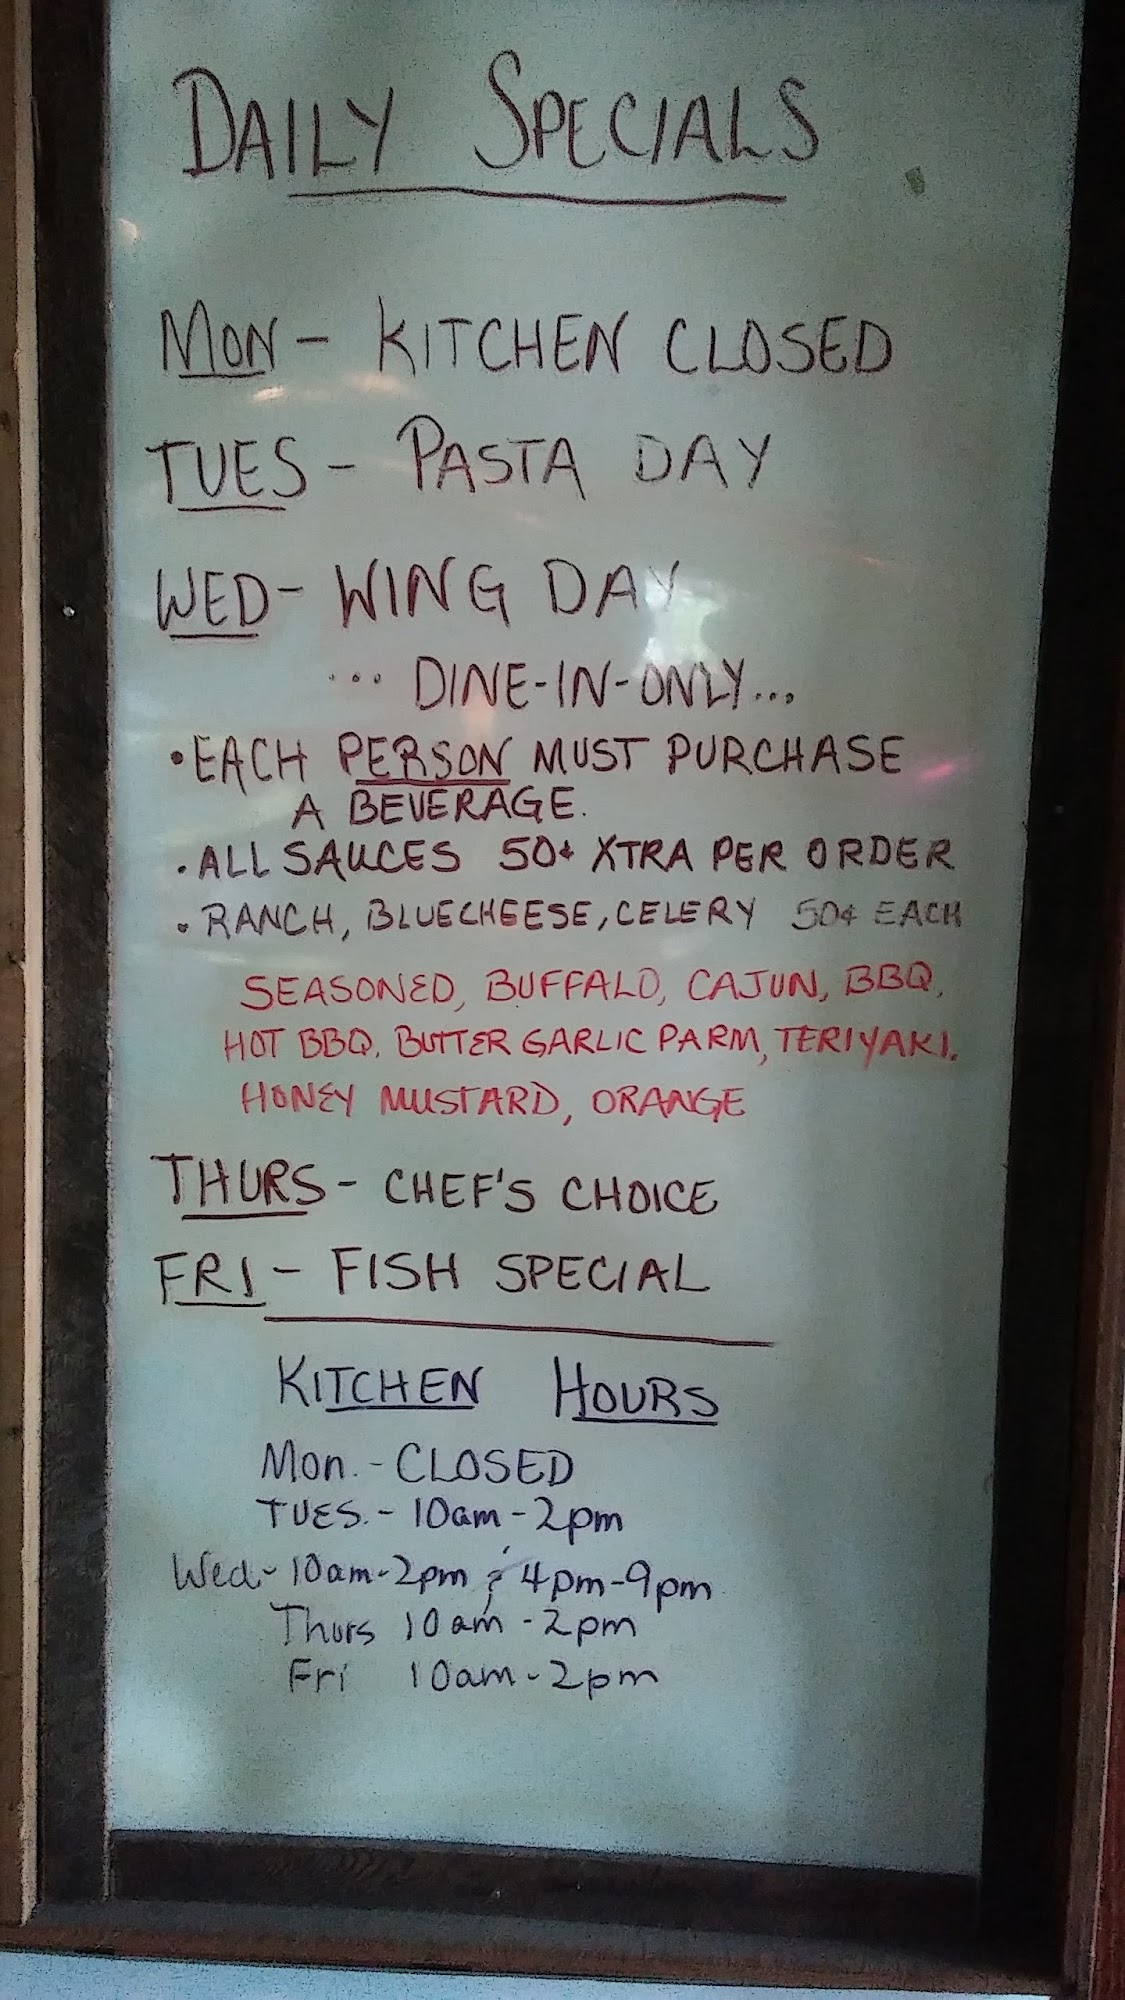 DAILY SPECIALS
MON - KITCHEN CLOSED
TUES - PASTA DAY
WED - WING DAY
... DINE-IN-ONLY...
• EACH PERSON MUST PURCHASE
A BEVERAGE.
• ALL SAUCES 50¢ XTRA PER ORDER
• RANCH, BLUECHEESE, CELERY 50¢ EACH
SEASONED, BUFFALO, CAJUN, BBQ,
HOT BBQ, BUTTER GARLIC PARM, TERIYAKI,
HONEY MUSTARD, ORANGE
THURS - CHEF'S CHOICE
FRI - FISH SPECIAL
KITCHEN HOURS
Mon. - CLOSED
TUES. - 10am - 2pm
Wed - 10am - 2pm & 4pm - 9pm
Thurs 10am - 2pm
Fri 10am - 2pm